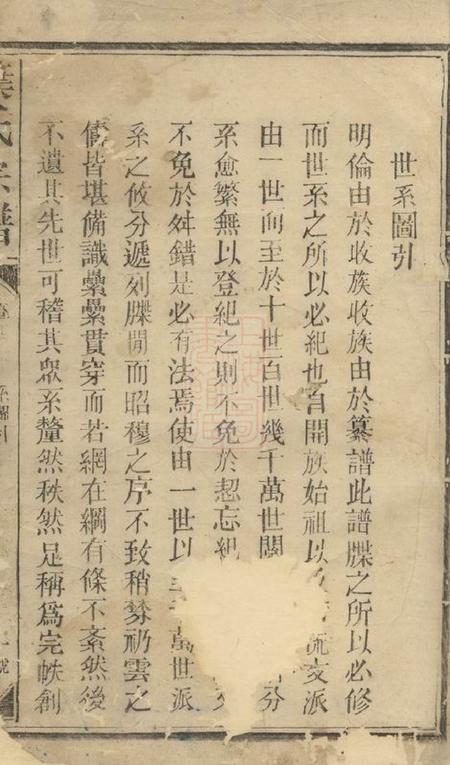 世系圖引
明倫由於收族收族由於纂譜此譜牒之所以必修
而世系之所以必紀也自開族始祖以流支派
由一世而至於十世百世幾千萬世閱分
系愈繁無以登紀之則不免於恝忘紀
不免於舛錯是必有法焉使由一世以萬世派
系之攸分遞列牒間而昭穆之序不致稍棼礽雲之
儔皆堪備識纍纍貫穿而若網在綱有條不紊然後
不遺其先世可稽其眾系釐然秩然足稱為完帙創
氏宗譜